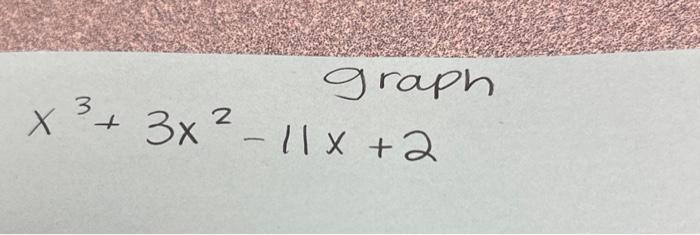 graph
x³ + 3x² - 11x + 2